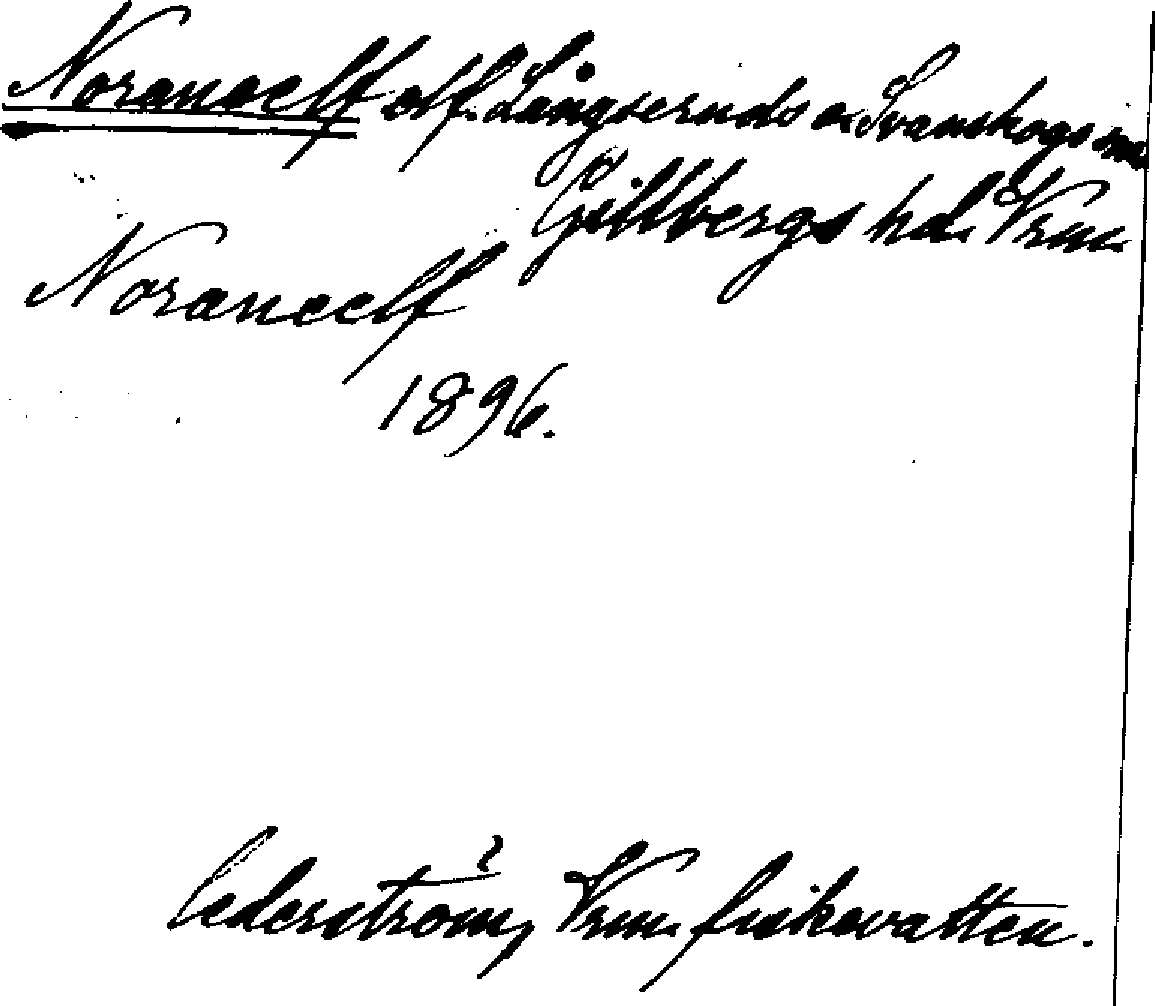 Noraneelf elf. Långseruds o. Svanskogs snr
Gillbergs hd. Vrm.
Noraneelf
1896.
Cederström, Vrm. fiskevatten.